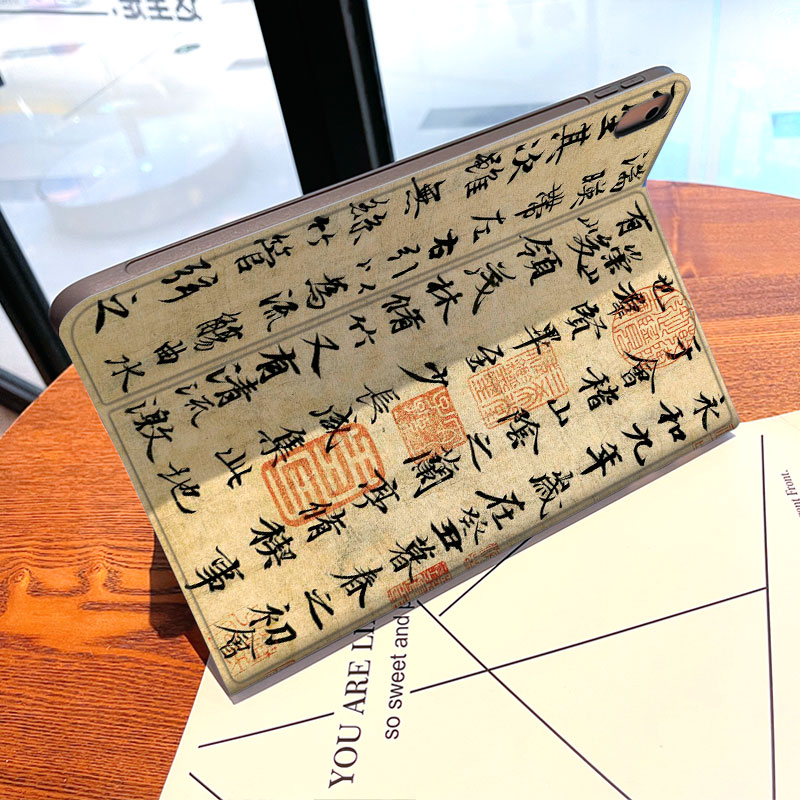 坐其次雖無絲竹管弦之
湍暎帶左右引以為流觴曲水
有崇山峻領茂林脩竹又有清流激
也羣賢畢至少長咸集此地
于會稽山陰之蘭亭脩禊事
永和九年歲在癸丑暮春之初會
YOU ARE
so sweet and
Front.